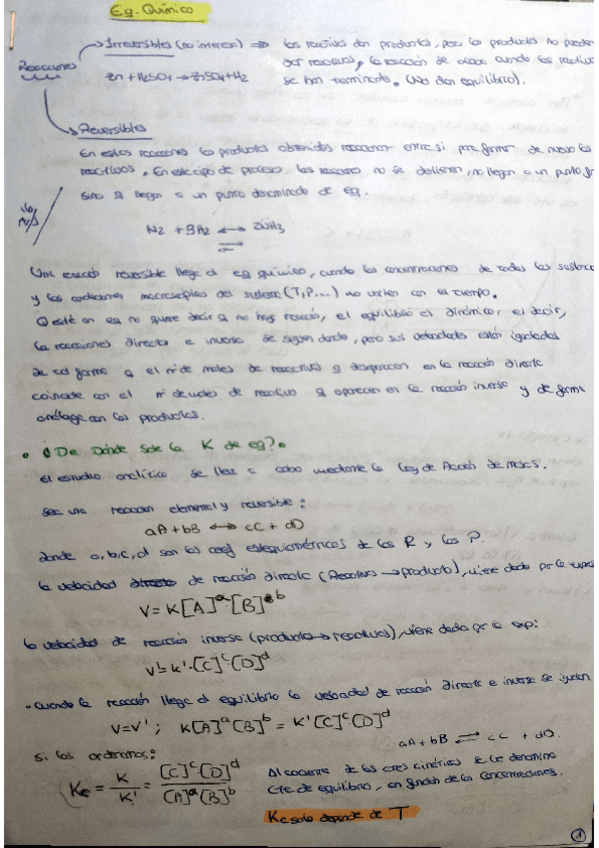 Eq. Químico
Reacciones
Irreversibles (no interesa) ⇒ los reactivos dan productos, pero los productos no pueden
dar reactivos, la reacción se acaba cuando los reactivos
Zn + H2SO4 → ZnSO4 + H2 se han terminado. (No dan equilibrio).
Reversibles
En estas reacciones los productos obtenidos reaccionan entre si para formar de nuevo los
reactivos. En este tipo de proceso, los reacciones no se detienen, no llegan a un punto
sino q llegan a un punto denominado de eq.
N2 + 3H2 ⟷ 2NH3
⇌
Una reacció reversible llega al eq químico, cuando las concentraciones de todas las
y las condiciones macroscópicas del sistema (T, P...) no varien con el tiempo.
Q esté en eq no quiere decir q no hay reacció, el equilibrio es dinámico, es decir,
la reacciones directa e inversa se siguen dando, pero sus velocidades están igualadas
de tal forma q el nº de moles de reactivos q desaparecen en la reacción directa
coincide con el nº de moles de reactivo q aparecen en la reacción inversa y de forma
análoga con los productos.
• ¿De Dónde Sale la K de eq?.
el estudio analítico se lleva a cabo mediante la Ley de Acción de masas.
sea una reacción elemental y reversible:
aA + bB ⟷ cC + dD
donde a, b, c, d son los coef estequiométricos de los R y los P.
la velocidad de reacción directa (Reactivos → producto), viene dada por la
V = K[A]^a·[B]^b
la velocidad de reacció inversa (producto → reactivos), viene dada por la exp:
V' = K'·[C]^c·[D]^d
• Cuando la reacción llega al equilibrio la velocidad de reacción directa e inversa se igualan
V = V' ; K[A]^a[B]^b = K'[C]^c·[D]^d
aA + bB ⇌ cC + dD.
si los ordenamos:
Kc = K/K' = [C]^c·[D]^d/[A]^a[B]^b
Al cociente de las ctes cinéticas se le denomina
cte de equilibrio, en función de las concentraciones.
Kc solo depende de T
1